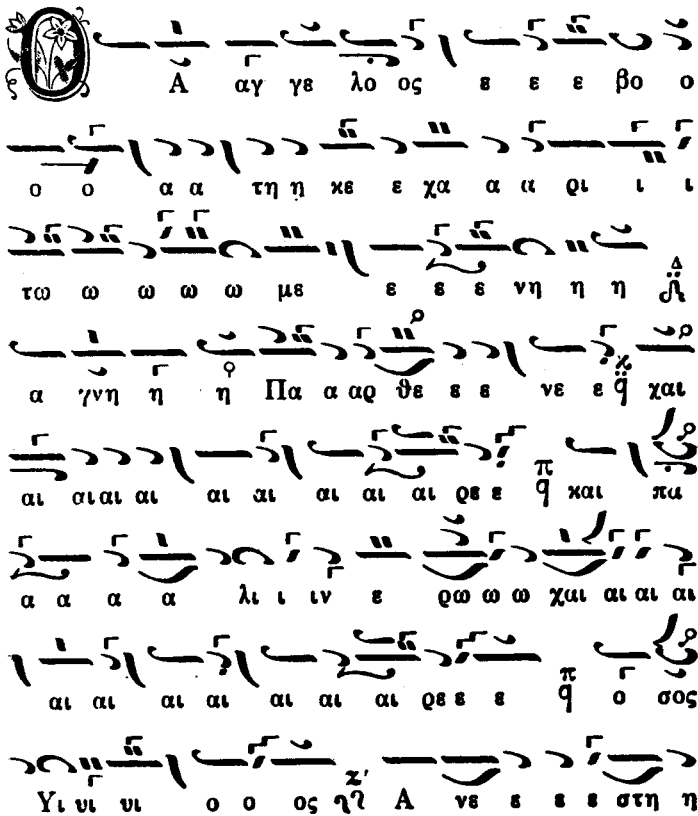 Ο Α αγ γε λο ος ε ε ε βο ο
ο ο α α τη η κε ε χα α α ρι ι ι
τω ω ω ω ω με ε ε ε νη η η Δ
α γνη η η Πα α αρ θε ε ε νε ε χ q χαι
αι αι αι αι αι αι αι αι αι ρε ε π q και πα
α α α α λι ι ιν ε ρω ω ω χαι αι αι αι
αι αι αι αι αι αι αι ρε ε ε π q ο σος
Υι υι υι ο ο ος ζ' Α νε ε ε ε στη η